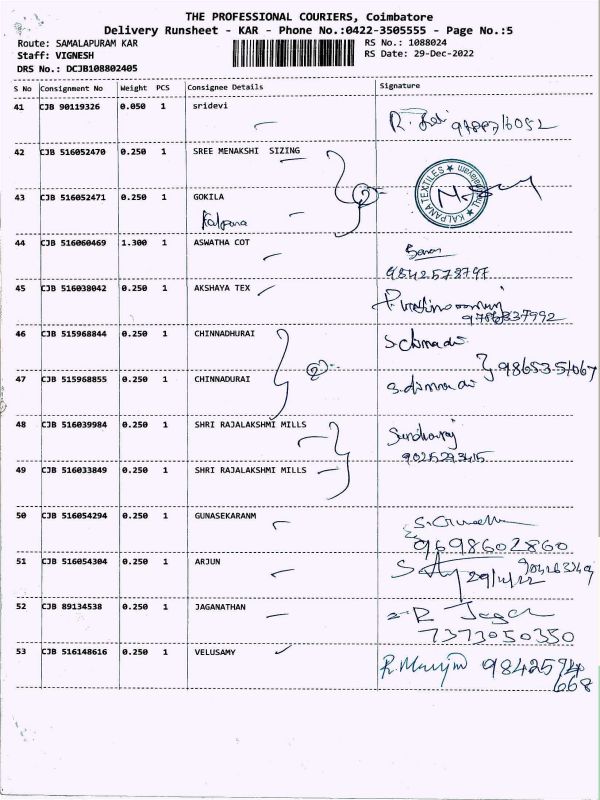 THE PROFESSIONAL COURIERS, Coimbatore
Delivery Runsheet - KAR - Phone No.:0422-3505555 - Page No.:5
Route: SAMALAPURAM KAR
RS No.: 1088024
Staff: VIGNESH
RS Date: 29-Dec-2022
DRS No.: DCJB108802405
S No Consignment No Weight PCS Consignee Details Signature
41 CJB 90119326 0.050 1 sridevi
42 CJB 516052470 0.250 1 SREE MENAKSHI SIZING
KALPANA TEXTILES
43 CJB 516052471 0.250 1 GOKILA
Kalpana
44 CJB 516060469 1.300 1 ASWATHA COT
9842578797
45 CJB 516038042 0.250 1 AKSHAYA TEX
9786837992
46 CJB 515968844 0.250 1 CHINNADHURAI
47 CJB 515968855 0.250 1 CHINNADURAI
48 CJB 516039984 0.250 1 SHRI RAJALAKSHMI MILLS
Sundharaj
9025293415
49 CJB 516033849 0.250 1 SHRI RAJALAKSHMI MILLS
50 CJB 516054294 0.250 1 GUNASEKARANM
9698602860
51 CJB 516054304 0.250 1 ARJUN
29/12/22
52 CJB 89134538 0.250 1 JAGANATHAN
7373050350
53 CJB 516148616 0.250 1 VELUSAMY